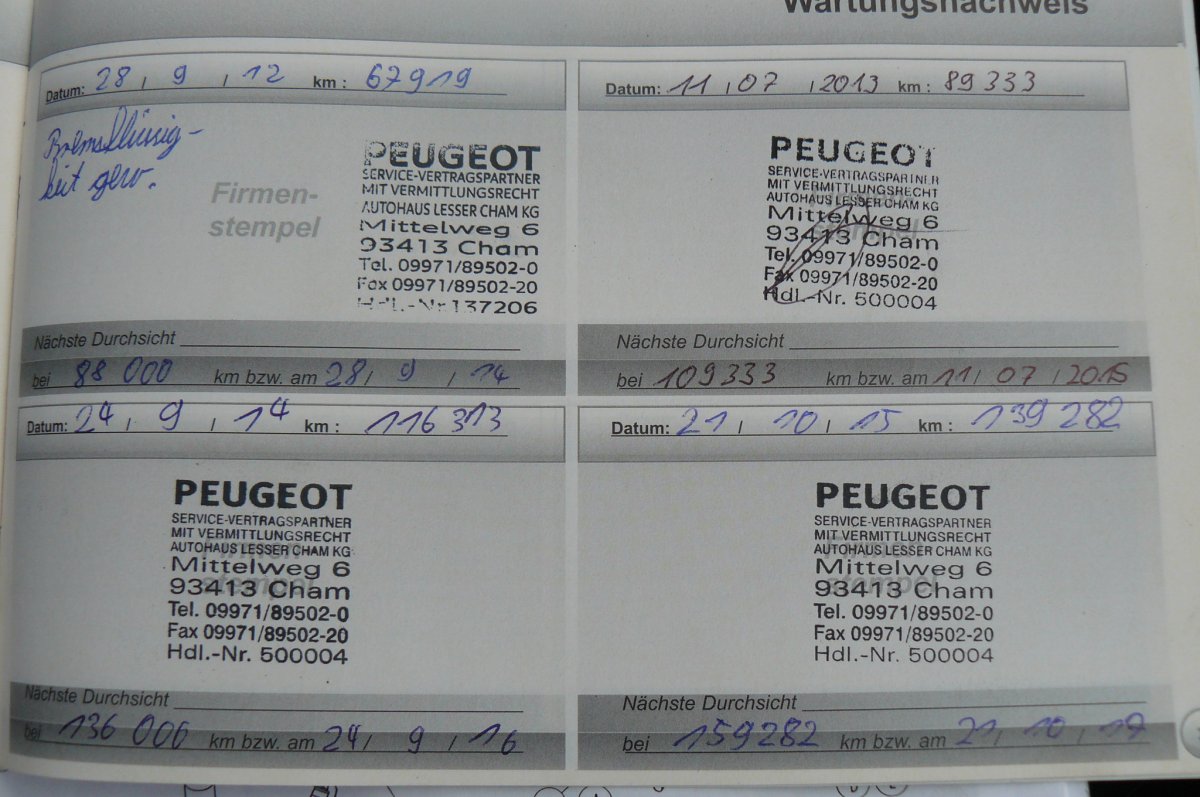 Wartungsnachweis
Datum: 28 / 9 / 12 km : 67919
Bremsflüssig-
keit gew.
Firmen-
stempel
PEUGEOT
SERVICE-VERTRAGSPARTNER
MIT VERMITTLUNGSRECHT
AUTOHAUS LESSER CHAM KG
Mittelweg 6
93413 Cham
Tel. 09971/89502-0
Fax 09971/89502-20
Hdl.-Nr 137206
Nächste Durchsicht
bei 88 000 km bzw. am 28 / 9 / 14
Datum: 11 / 07 / 2013 km : 89333
PEUGEOT
SERVICE-VERTRAGSPARTNER
MIT VERMITTLUNGSRECHT
AUTOHAUS LESSER CHAM KG
Mittelweg 6
93413 Cham
Tel. 09971/89502-0
Fax 09971/89502-20
Hdl.-Nr. 500004
Nächste Durchsicht
bei 109333 km bzw. am 11 / 07 / 2015
Datum: 24 / 9 / 14 km : 116 313
PEUGEOT
SERVICE-VERTRAGSPARTNER
MIT VERMITTLUNGSRECHT
AUTOHAUS LESSER CHAM KG
Mittelweg 6
93413 Cham
Tel. 09971/89502-0
Fax 09971/89502-20
Hdl.-Nr. 500004
Nächste Durchsicht
bei 136 000 km bzw. am 24 / 9 / 16
Datum: 21 / 10 / 15 km : 139 282
PEUGEOT
SERVICE-VERTRAGSPARTNER
MIT VERMITTLUNGSRECHT
AUTOHAUS LESSER CHAM KG
Mittelweg 6
93413 Cham
Tel. 09971/89502-0
Fax 09971/89502-20
Hdl.-Nr. 500004
Nächste Durchsicht
bei 159282 km bzw. am 21 / 10 / 17